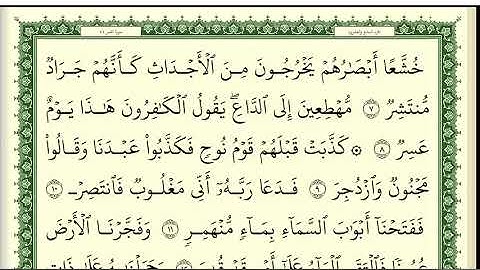 خُشَّعًا أَبْصَارُهُمْ يَخْرُجُونَ مِنَ ٱلْأَجْدَاثِ كَأَنَّهُمْ جَرَادٌ
مُّنتَشِرٌ ٧ مُّهْطِعِينَ إِلَى ٱلدَّاعِ ۖ يَقُولُ ٱلْكَٰفِرُونَ هَٰذَا يَوْمٌ
عَسِرٌ ٨ ۞ كَذَّبَتْ قَبْلَهُمْ قَوْمُ نُوحٍ فَكَذَّبُوا۟ عَبْدَنَا وَقَالُوا۟
مَجْنُونٌ وَٱزْدُجِرَ ٩ فَدَعَا رَبَّهُۥٓ أَنِّى مَغْلُوبٌ فَٱنتَصِرْ ١٠
فَفَتَحْنَآ أَبْوَٰبَ ٱلسَّمَآءِ بِمَآءٍ مُّنْهَمِرٍ ١١ وَفَجَّرْنَا ٱلْأَرْضَ